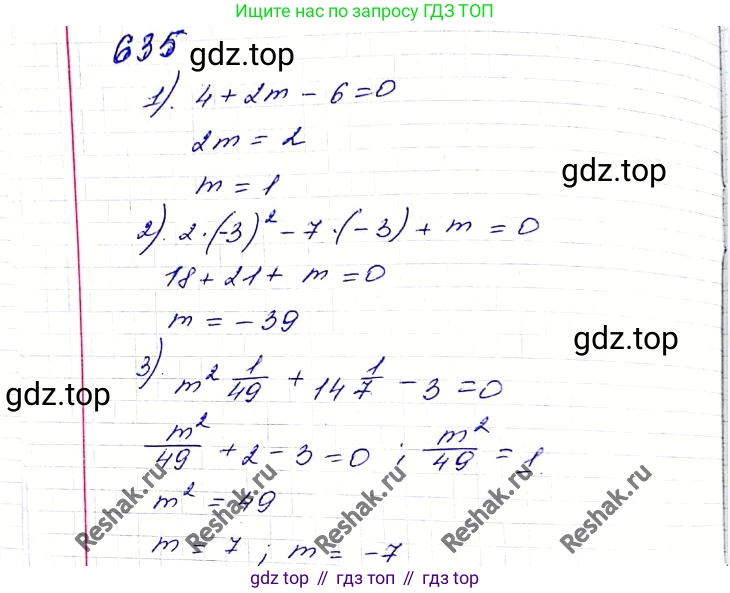 Ищите нас по запросу ГДЗ ТОП
635
gdz.top
1). 4 + 2m - 6 = 0
2m = 2
gdz.top
m = 1
2). 2·(-3)² - 7·(-3) + m = 0
18 + 21 + m = 0
m = -39
gdz.top
3). m² 1/49 + 14 1/7 - 3 = 0
gdz.top
m²/49 + 2 - 3 = 0 ; m²/49 = 1
m² = 49
m = 7 ; m = -7
Reshak.ru
Reshak.ru
Reshak.ru
Reshak.ru
gdz top // гдз топ // gdz top